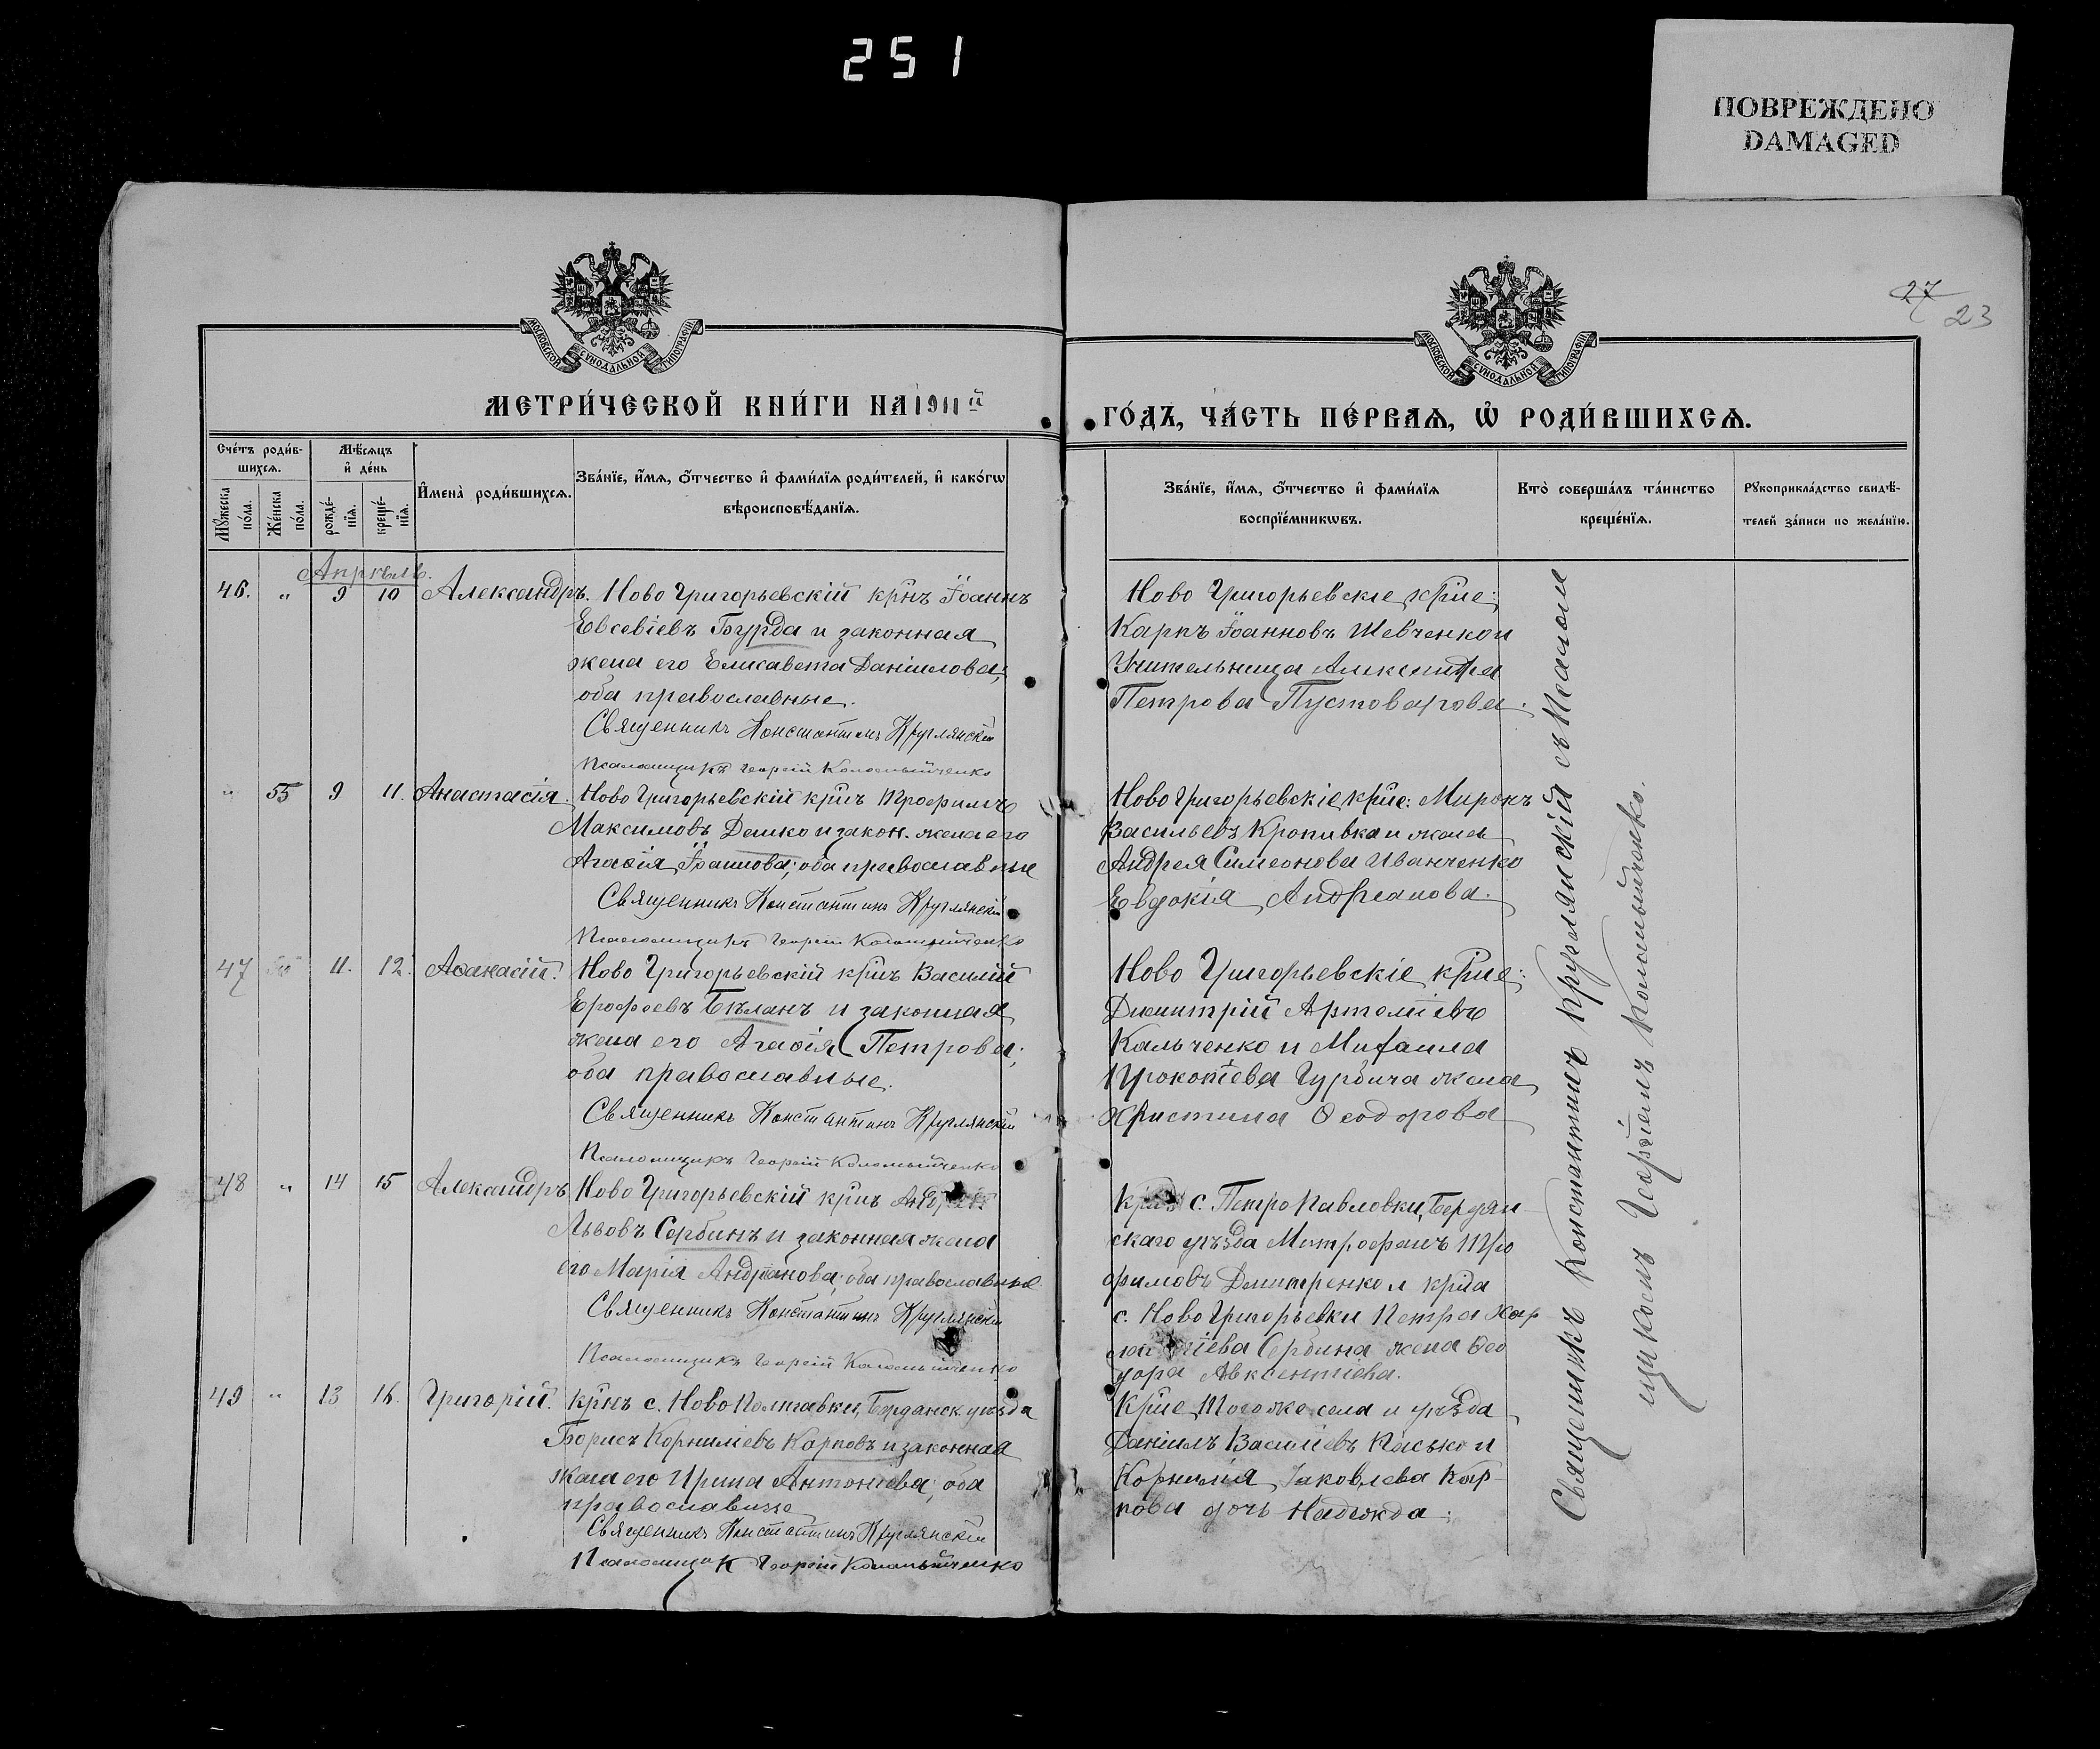 251
ПОВРЕЖДЕНО
DAMAGED
27
23
МОСКОВСКОЙ СѴНОДАЛЬНОЙ ТИПОГРАФІИ
МОСКОВСКОЙ СѴНОДАЛЬНОЙ ТИПОГРАФІИ
МЕТРИ́ЧЕСКОЙ КНИ́ГИ НА 1911й
ГО́ДЪ, ЧА́СТЬ ПЕ́РВАѦ, Ѡ҆ РОДИ́ВШИХСѦ.
Сче́тъ роди́в-
шихсѧ.
Мꙋ́жеска
по́ла.
Же́нска
по́ла.
Мѣ́сѧцъ
и҆ де́нь
рожде́-
нїѧ.
креще́-
нїѧ.
И҆мена̀ роди́вшихсѧ.
Зва́нїе, и҆́мѧ, ѻ҆́тчество и҆ фами́лїѧ роди́телей, и҆ како́гѡ
вѣроисповѣ́данїѧ.
Зва́нїе, и҆́мѧ, ѻ҆́тчество и҆ фами́лїѧ
воспрїе́мникѡвъ.
Кто̀ соверша́лъ та́инство
креще́нїѧ.
Рꙋкоприкла́дство свидѣ́-
телей за́писи по жела́нїю.
Апрѣль.
46. " 9 10 Александръ. Ново Григорьевскій крнъ Іоаннъ
Евсевіевъ Бурда и законная
жена его Елисавета Даніилова;
оба православные.
Священникъ Константинъ Круглянскій
Псаломщикъ Георгій Коломыйченко
Ново Григорьевскіе крне:
Карпъ Іоанновъ Шевченко и
Учительница Александра
Петрова Пустоварова.
" 55 9 11. Анастасія. Ново Григорьевскій крнъ Трофимъ
Максимовъ Демко и закон. жена его
Агаѳія Іоаннова; оба православные
Священникъ Константинъ Круглянскій
Псаломщикъ Георгій Коломыйченко
Ново Григорьевскіе крне: Миронъ
Васильевъ Кропивка и жена
Андрея Симеонова Иванченко
Евдокія Андреанова.
47 11. 12. Аѳанасій. Ново Григорьевскій крнъ Василій
Ерофеевъ Бѣланъ и законная
жена его Агаѳія Петрова;
оба православные.
Священникъ Константинъ Круглянскій
Псаломщикъ Георгій Коломыйченко
Ново Григорьевскіе крне:
Димитрій Артеміевъ
Кальченко и Михаила
Прокопіева Гурбича жена
Христина Ѳеодорова
48 " 14 15 Александръ Ново Григорьевскій крнъ
Львовъ Сербинъ и законная жена
его Марія Андріанова; оба православные.
Священникъ Константинъ Круглянскій
Псаломщикъ Георгій Коломыйченко
Крнъ с. Петро Павловки, Бердян-
скаго уѣзда Митрофанъ Тро
фимовъ Дмитренко и крна
с. Ново Григорьевки Петра Хар
Сербина жена Ѳео
дора Авксентіева.
49 " 13 16. Григорій. Крнъ с. Ново Полтавки, Бердянск. уѣзда
Борисъ Корниліевъ Карповъ и законная
жена его Ирина Антоніева; оба
православные
Священникъ Константинъ Круглянскій
Псаломщикъ Георгій Коломыйченко
Крне того же села и уѣзда
Даніилъ Василіевъ Пасько и
Корнилія Іаковлева Кар-
пова дочь Надежда.
Священникъ Константинъ Круглянскій съ Псалом
щикомъ Георгіемъ Коломыйченко.